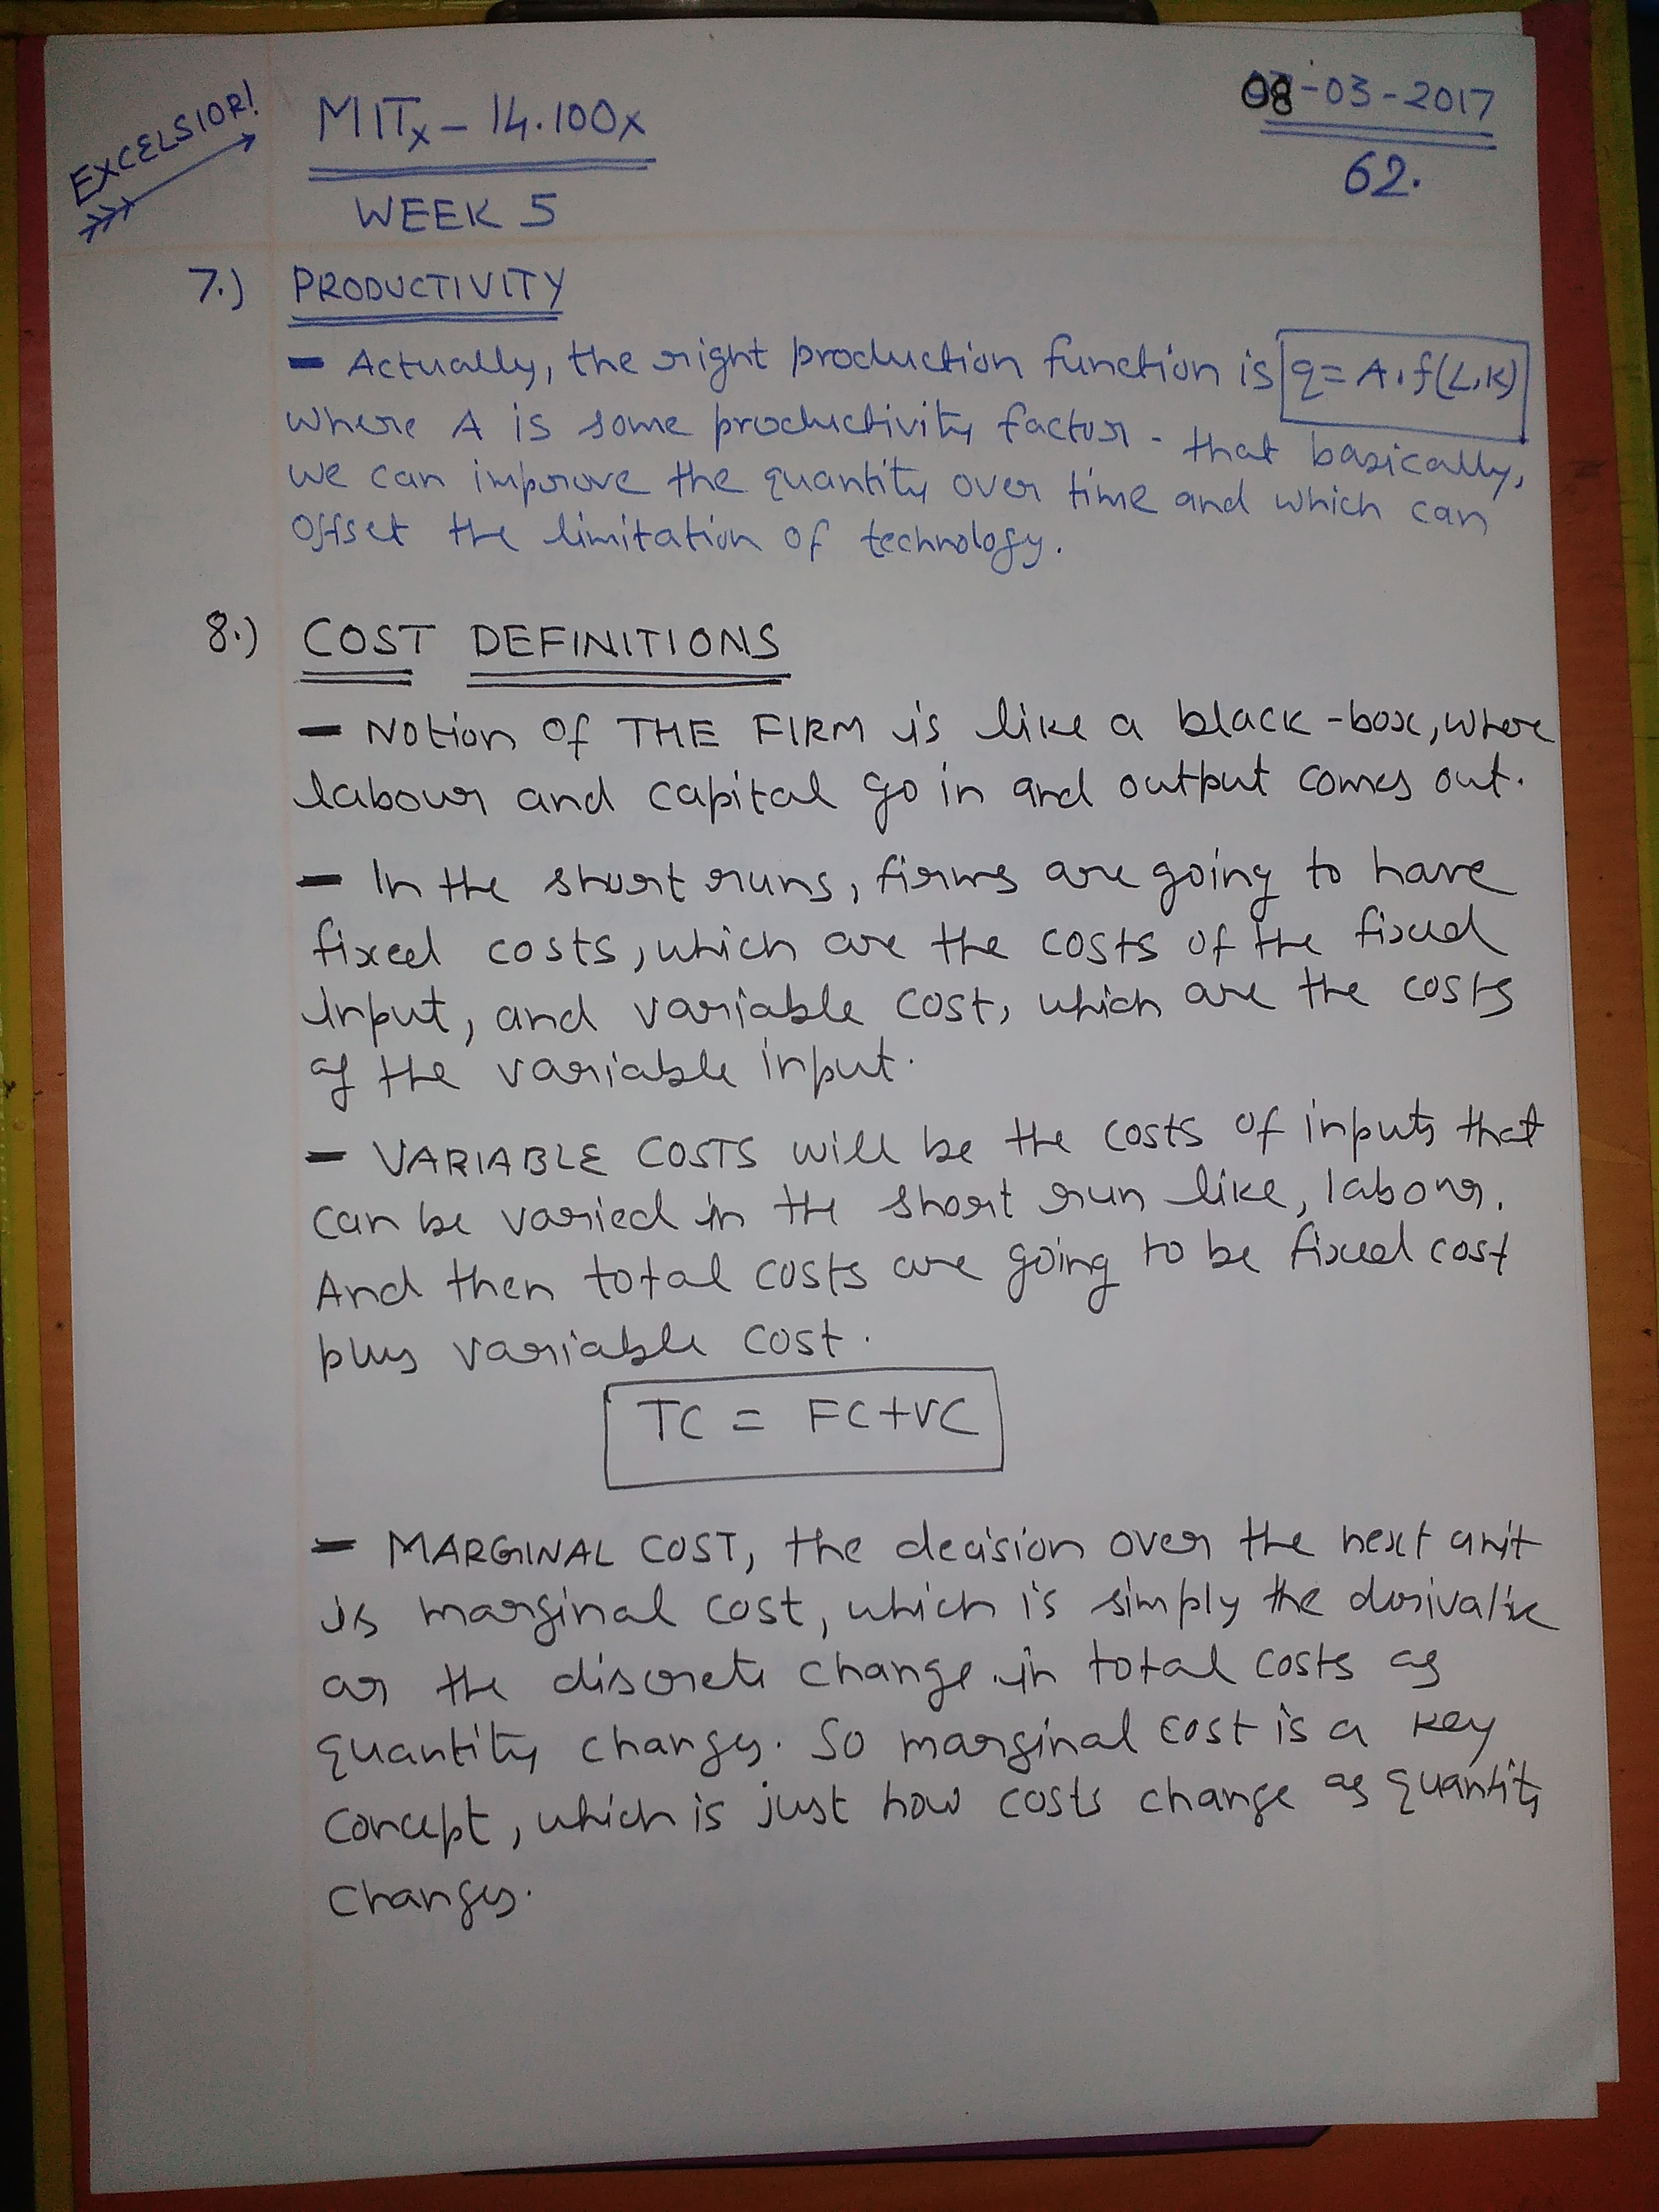 EXCELSIOR!
MITx - 14.100x
08-03-2017
62.
WEEK 5
7.) PRODUCTIVITY
- Actually, the right production function is q = A.f(L,K)
where A is some productivity factor - that basically,
we can improve the quantity over time and which can
offset the limitation of technology.
8.) COST DEFINITIONS
- Notion of THE FIRM is like a black-box, where
labour and capital go in and output comes out.
- In the short runs, firms are going to have
fixed costs, which are the costs of the fixed
input, and variable cost, which are the costs
of the variable input.
- VARIABLE COSTS will be the costs of inputs that
can be varied in the short run like, labour.
And then total costs are going to be fixed cost
plus variable cost.
TC = FC+VC
- MARGINAL COST, the decision over the next unit
is marginal cost, which is simply the derivative
or the discrete change in total costs as
quantity changes. So marginal cost is a key
concept, which is just how costs change as quantity
changes.